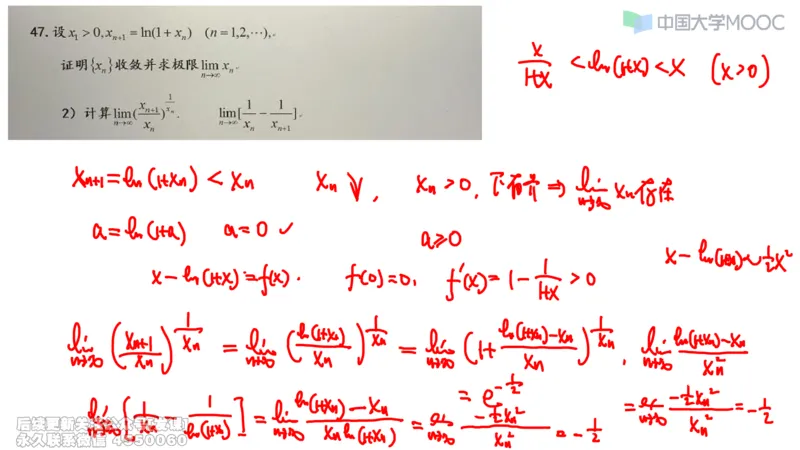 中国大学MOOC
47. 设 x₁ > 0, xₙ₊₁ = ln(1 + xₙ) (n = 1,2,⋯),
证明{xₙ}收敛并求极限 lim_{n→∞} xₙ
2) 计算 lim_{n→∞} (xₙ₊₁/xₙ)^{1/xₙ}. lim_{n→∞} [1/xₙ − 1/xₙ₊₁].
x/(1+x) < ln(1+x) < x (x>0)
xₙ₊₁ = ln(1+xₙ) < xₙ xₙ ↓, xₙ > 0, 下有界 ⇒ lim_{n→∞} xₙ 存在
a = ln(1+a) a = 0 ✓ a ≥ 0
x − ln(1+x) ~ ½x²
x − ln(1+x) = f(x). f(0) = 0, f′(x) = 1 − 1/(1+x) > 0
lim_{n→∞} (xₙ₊₁/xₙ)^{1/xₙ} = lim_{n→∞} (ln(1+xₙ)/xₙ)^{1/xₙ} = lim_{n→∞} (1 + (ln(1+xₙ) − xₙ)/xₙ)^{1/xₙ}, lim_{n→∞} (ln(1+xₙ) − xₙ)/xₙ²
= e^{−½} = lim_{n→∞} (−½xₙ²)/xₙ² = −½
lim_{n→∞} [1/xₙ − 1/ln(1+xₙ)] = lim_{n→∞} (ln(1+xₙ) − xₙ)/(xₙ ln(1+xₙ)) = lim_{n→∞} (−½xₙ²)/xₙ² = −½